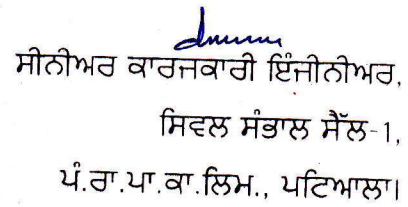 ਸੀਨੀਅਰ ਕਾਰਜਕਾਰੀ ਇੰਜੀਨੀਅਰ,
ਸਿਵਲ ਸੰਭਾਲ ਸੈੱਲ-1,
ਪੰ.ਰਾ.ਪਾ.ਕਾ.ਲਿਮ., ਪਟਿਆਲਾ।